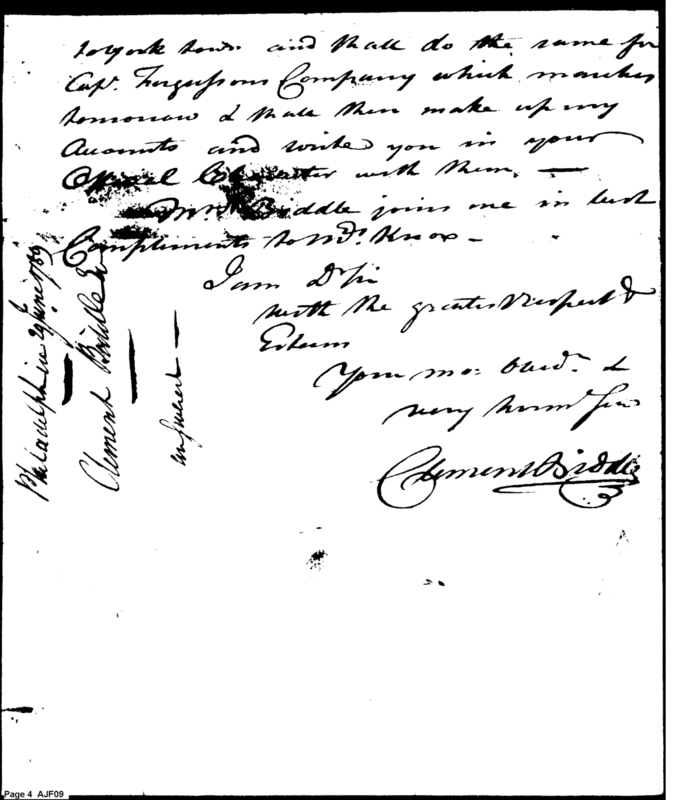 to York town and shall do the same for
Capt. Fergussons Company which marches
tomorrow & shall then make up my
Accounts and write you in your
Official Character with them. —
Mrs. Biddle joins me in best
Compliments to Mrs. Knox —
I am Dr Sir
with the greatest respect &
Esteem
Your mo: Obedt. &
very humb Serv
Clement Biddle
Philadelphia 29 June 1789
Clement Biddle Esqr
answered —
Page 4 AJF09